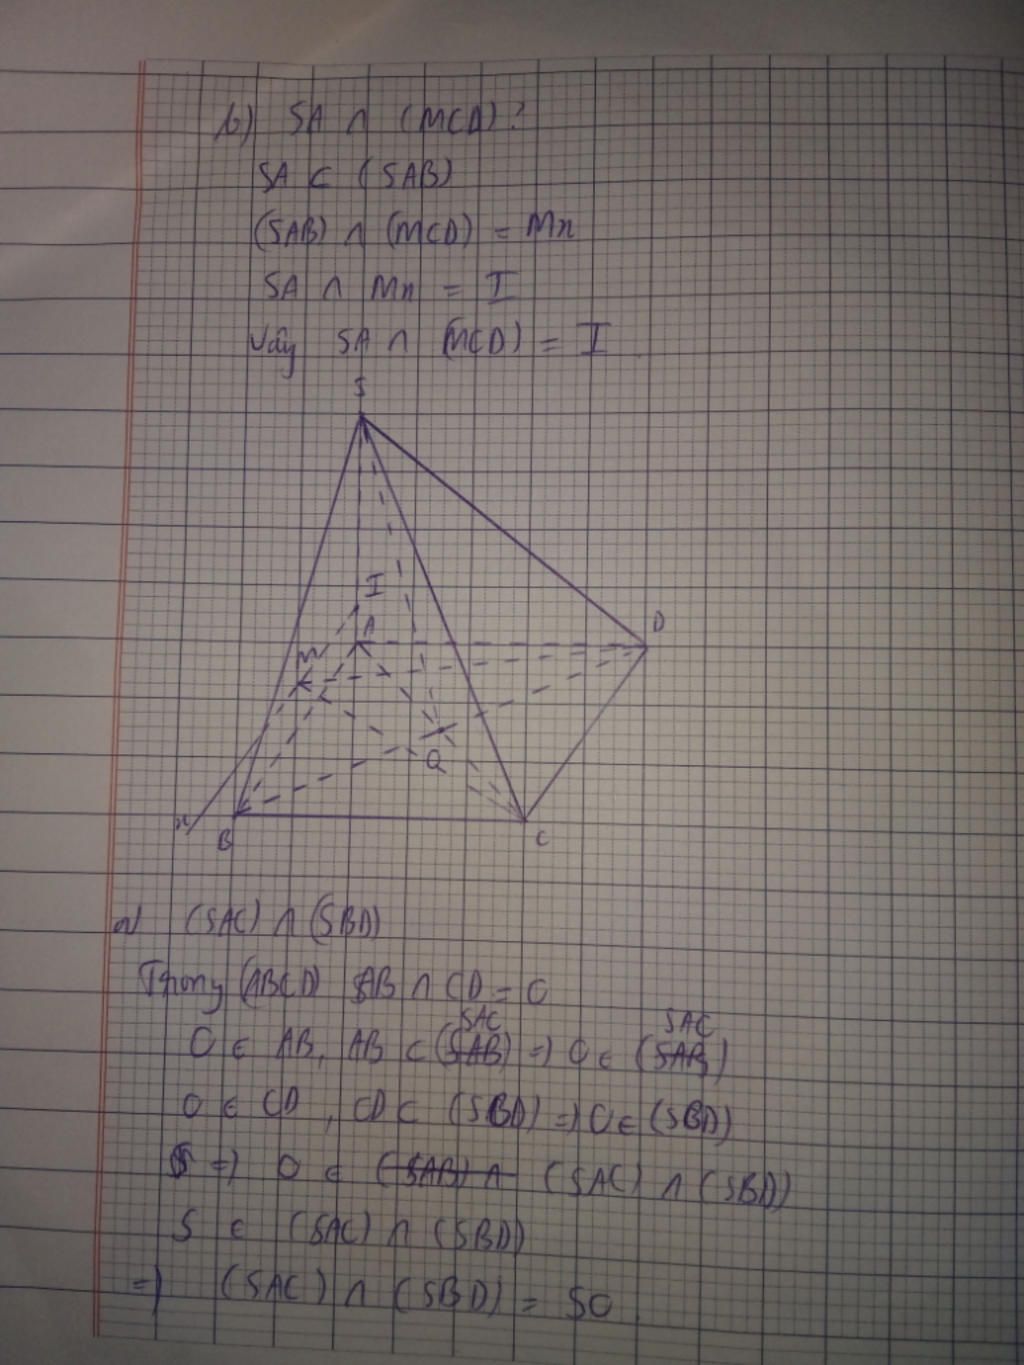 b) SA ∩ (MCD)?
SA ⊂ (SAB)
(SAB) ∩ (MCD) = Mx
SA ∩ Mx = I
Vậy SA ∩ (MCD) = I
S
I
A
D
M
O
x
B
C
a) (SAC) ∩ (SBD)
Trong (ABCD) AB ∩ CD = O
SAC SAC
O ∈ AB, AB ⊂ (SAB) => O ∈ (SAB)
O ∈ CD, CD ⊂ (SBD) => O ∈ (SBD)
=> O ∈ (SAB) ∩ (SAC) ∩ (SBD)
S ∈ (SAC) ∩ (SBD)
=> (SAC) ∩ (SBD) = SO